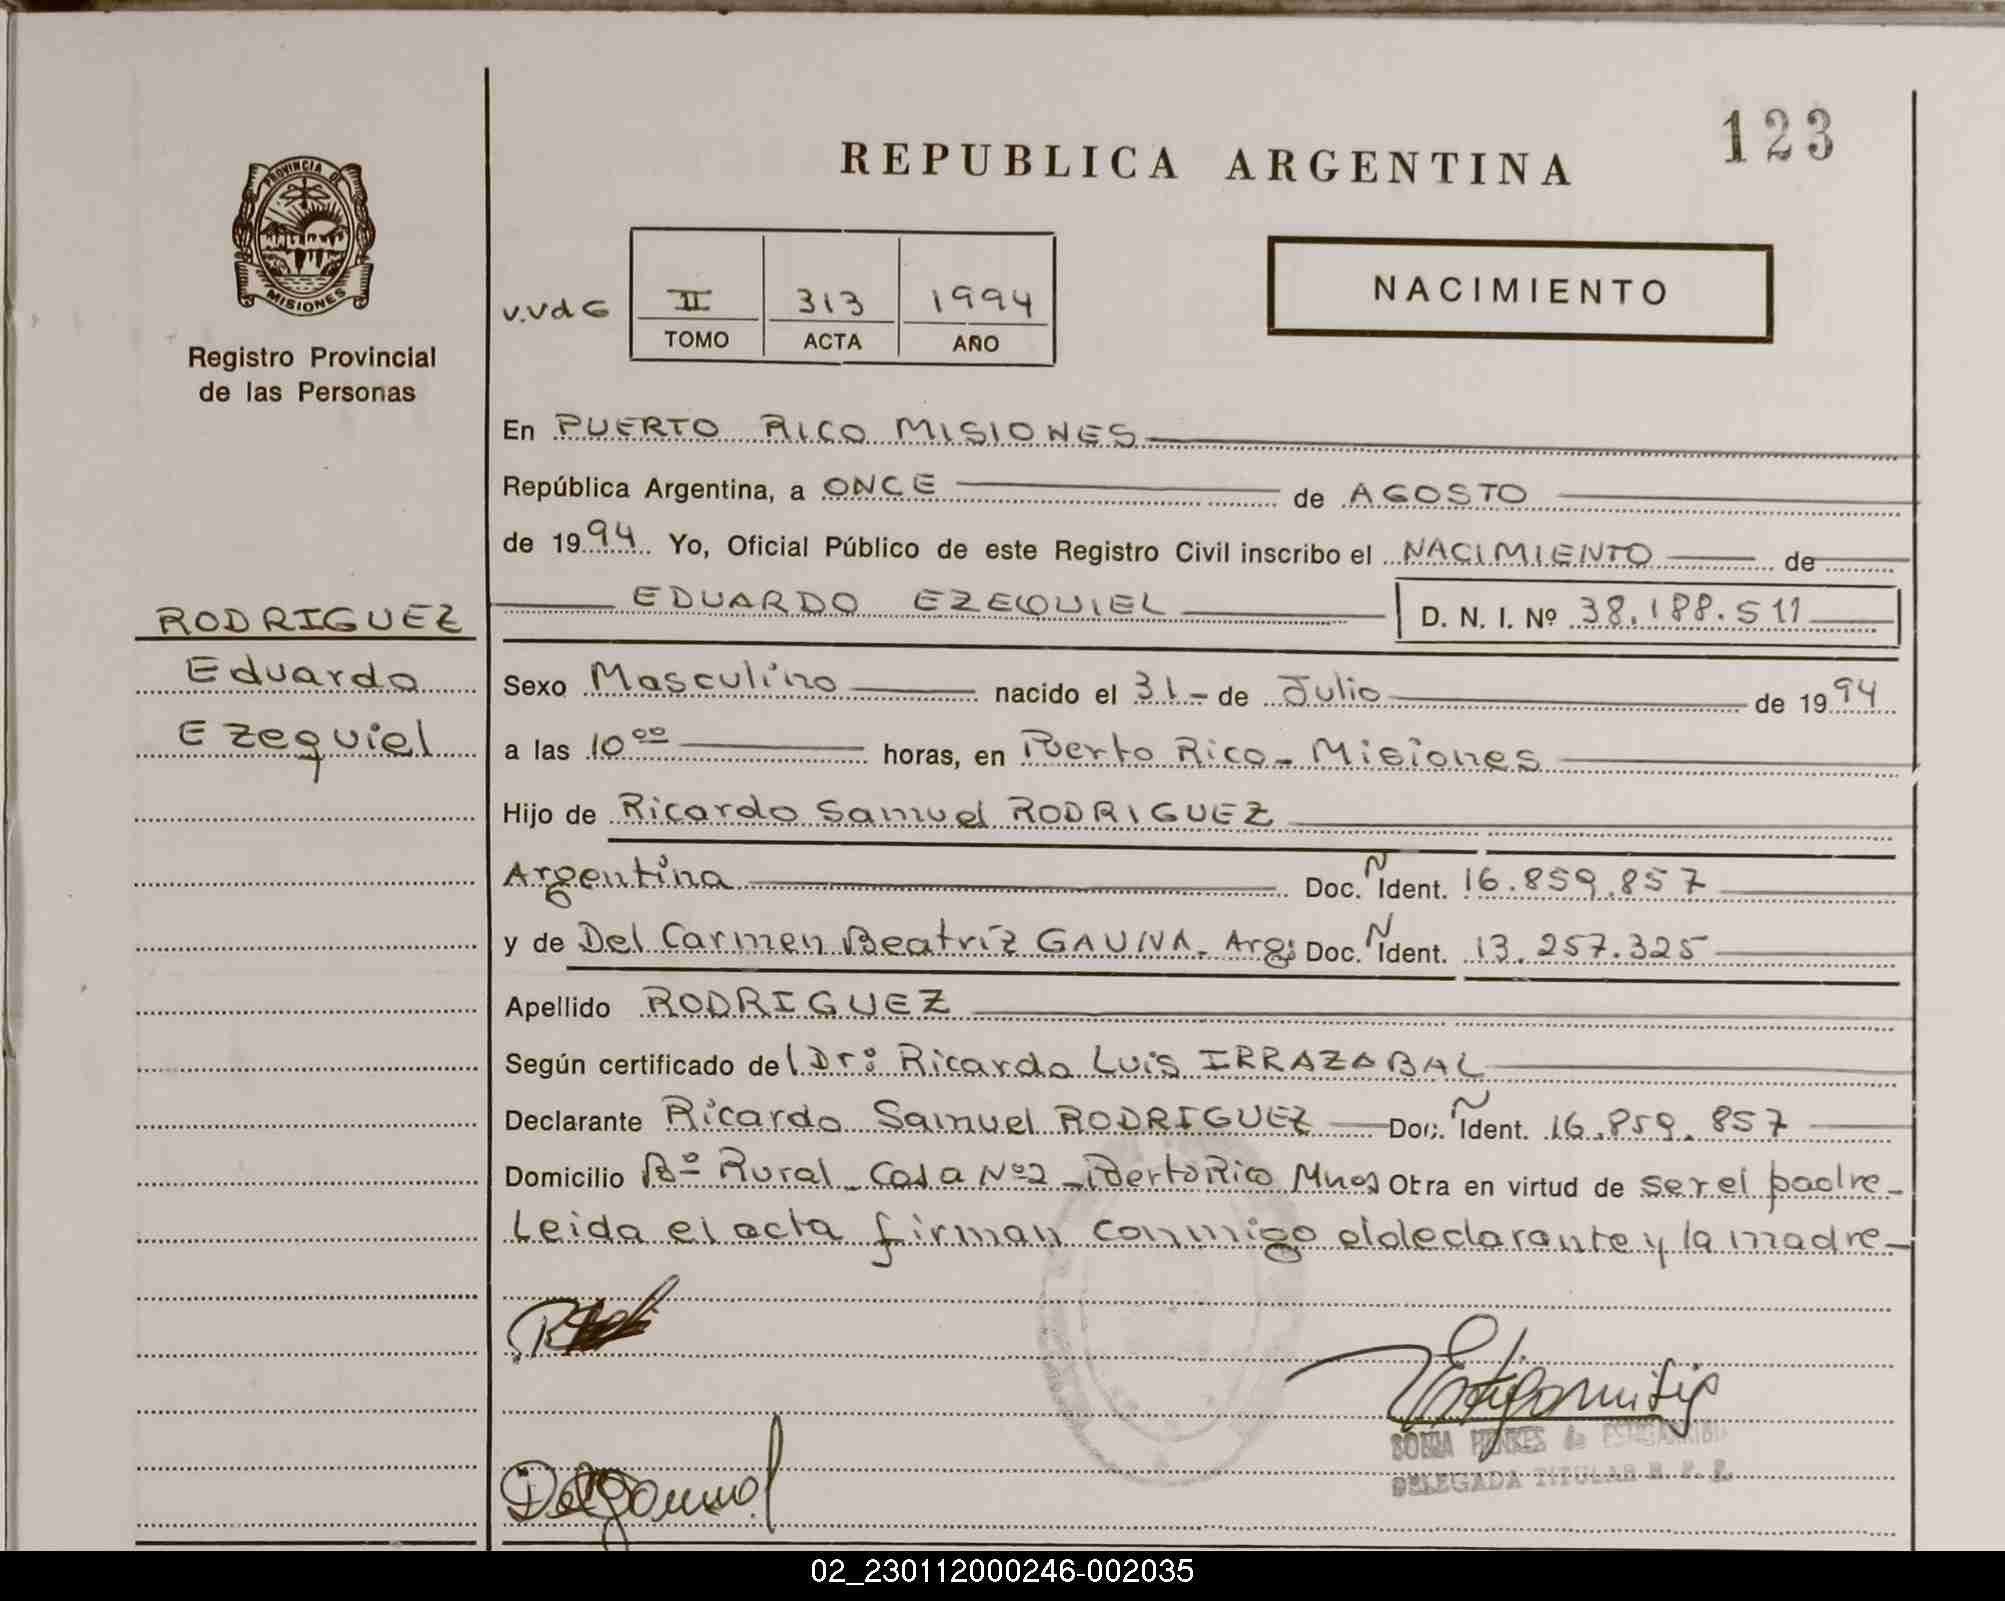 123
REPUBLICA ARGENTINA
PROVINCIA DE
MISIONES
Registro Provincial
de las Personas
V.VdG
II 313 1994
TOMO ACTA AÑO
NACIMIENTO
En PUERTO RICO MISIONES
República Argentina, a ONCE de AGOSTO
de 1994 Yo, Oficial Público de este Registro Civil inscribo el NACIMIENTO de
EDUARDO EZEQUIEL D. N. I. Nº 38.188.511
RODRIGUEZ
Eduardo
Ezequiel
Sexo Masculino nacido el 31- de Julio de 1994
a las 10 00 horas, en Puerto Rico - Misiones
Hijo de Ricardo Samuel RODRIGUEZ
Argentina Doc. Ñ Ident. 16.859.857
y de Del Carmen Beatriz GAUNA - Arg; Doc. Ñ Ident. 13.257.325
Apellido RODRIGUEZ
Según certificado del Dr: Ricardo Luis IRRAZABAL
Declarante Ricardo Samuel RODRIGUEZ Doc. Ñ Ident. 16.859.857
Domicilio Bº Rural - Casa Nº2 - Puerto Rico Mnes Otra en virtud de ser el padre-
Leida el acta firman conmigo el declarante y la madre-
SONIA HENKES de
DELEGADA TITULAR R. P. P.
02_230112000246-002035